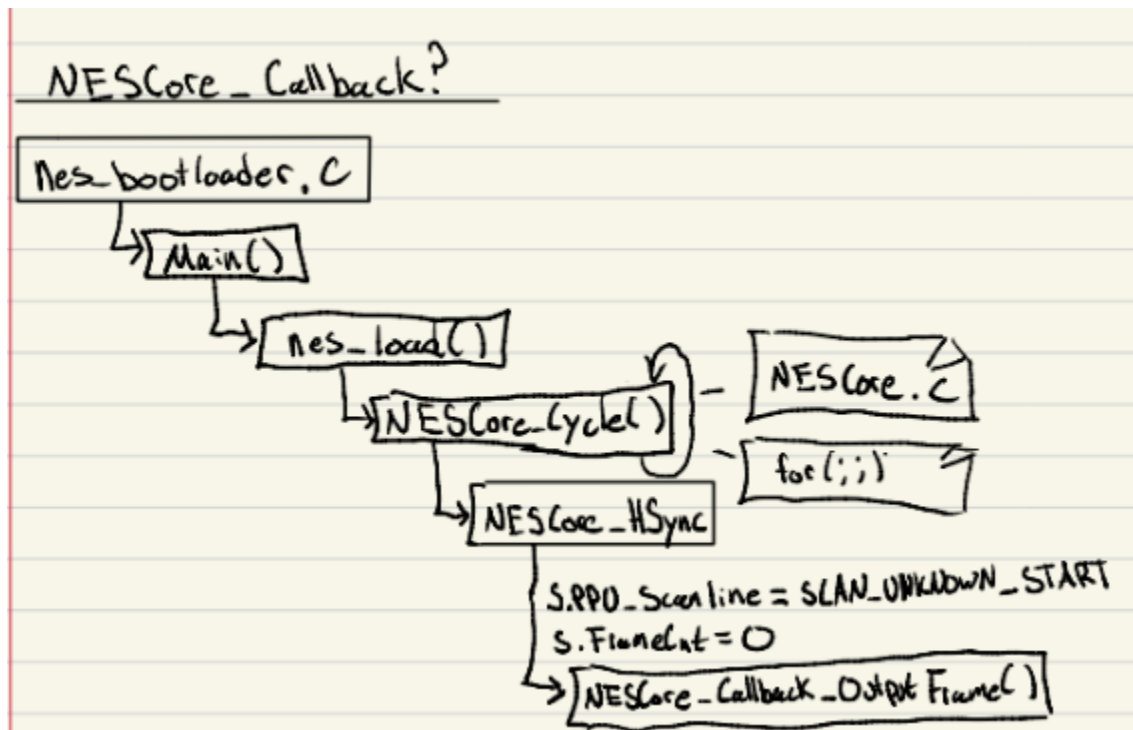 NESCore_Callback?
nes_bootloader.c
Main()
nes_load()
NESCore_Cycle()
NESCore.c
for(;;)
NESCore_HSync
S.PPU_Scanline = SCAN_UNKNOWN_START
S.FrameCnt = 0
NESCore_Callback_OutputFrame()